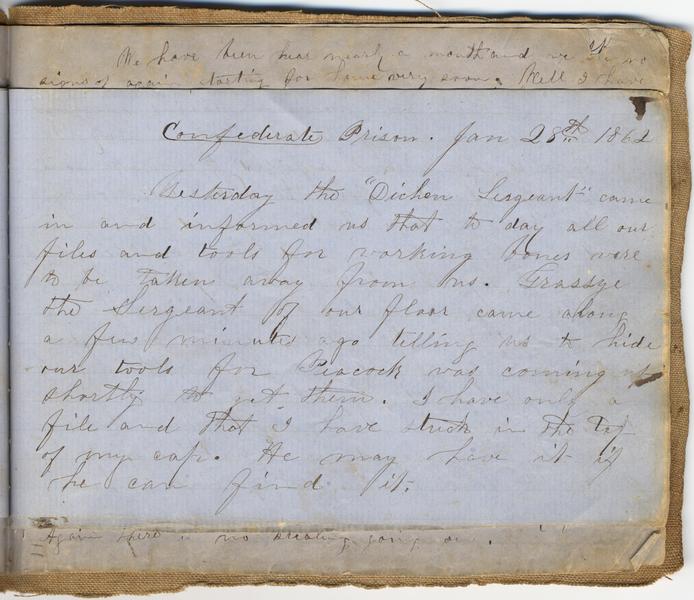 We have been hear nearly a month and we see no
signs of again starting for home very soon. Well I have
Confederate Prison. Jan 28th 1862
Yesterday the "Dichen Sergeant" came
in and informed us that to day all our
files and tools for working bones were
to be taken away from us. Grassye
the Sergeant of our floor came along
a few minutes ago telling us to hide
our tools for Peacock was coming up
shortly to get them. I have only a
file and that I have stuck in the Top
of my cap. He may have it if
he can find it.
Again there is no going on.